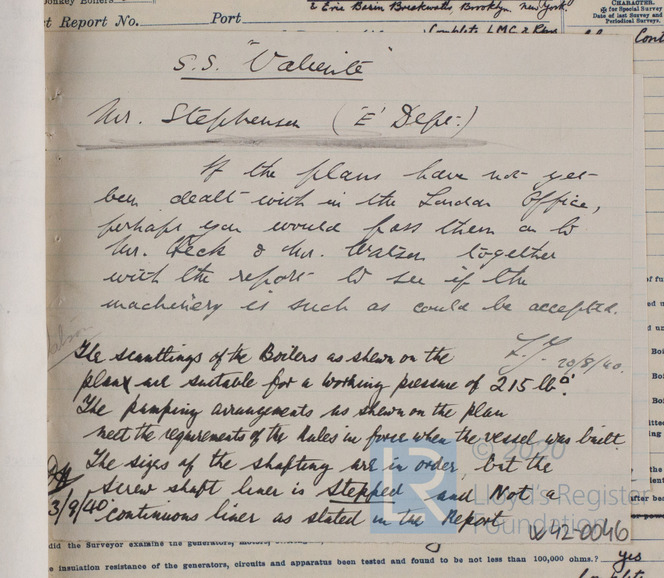 Donkey Boilers
t Report No. Port
2 Erie Basin Breakwater, Brooklyn, New York
CHARACTER.
for Special Survey
Date of last Survey and
Periodical Surveys.
Complete LMC &
S.S. "Valiente"
Mr. Stephenson ('E' Dept:)
If the plans have not yet
been dealt with in the London Office,
perhaps you would pass them on to
Mr. Heck & Mr. Watson together
with the report to see if the
machinery is such as could be accepted.
20/8/40.
Watson
The scantlings of the Boilers as shewn on the
plans are suitable for a working pressure of 215 lb□".
The pumping arrangements as shewn on the plan
meet the requirements of the Rules in force when the vessel was built.
The sizes of the shafting are in order, but the
screw shaft liner is Stepped and Not a
3/9/40. continuous liner as stated in the Report
© 2020
LR
Lloyd's Register
Foundation
W42-0046
did the Surveyor examine the generators, motors,
insulation resistance of the generators, circuits and apparatus been tested and found to be not less than 100,000 ohms.? yes